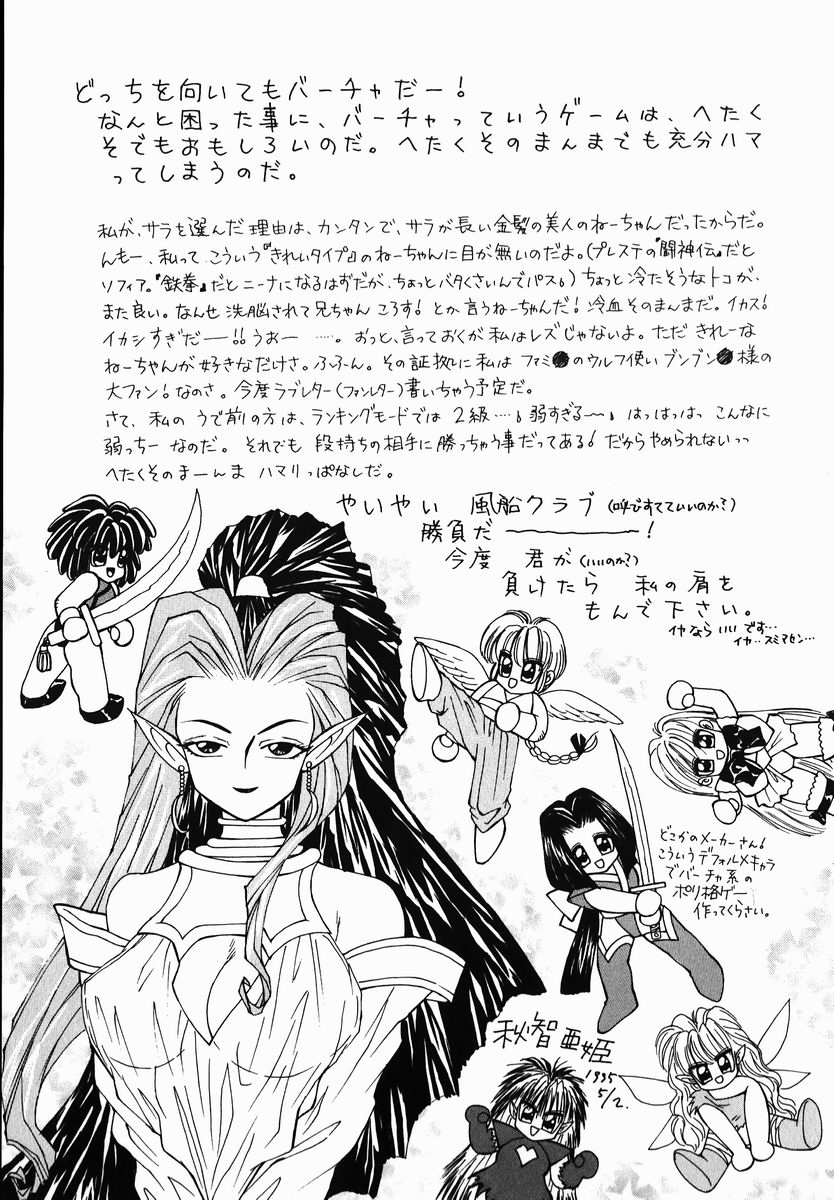 どっちを向いてもバーチャだー!
なんと困った事に、バーチャっていうゲームは、へたく
そでもおもしろいのだ。へたくそのまんまでも充分ハマ
ってしまうのだ。
私が、サラを選んだ理由は、カンタンで、サラが長い金髪の美人のねーちゃんだったからだ。
んもー、私ってこういう『きれいタイプ』のねーちゃんに目が無いのだよ。(プレステの『闘神伝』だと
ソフィア。『鉄拳』だとニーナになるはずだが、ちょっとバタくさいんでパス。)ちょっと冷たそうなトコが、
また良い。なんせ洗脳されて兄ちゃんころす!とか言うねーちゃんだ!冷血そのまんまだ。イカス!
イカシすぎだー!!うおー……。おっと、言っておくが私はレズじゃないよ。ただきれーな
ねーちゃんが好きなだけさ。ふふーん。その証拠に私はファミ●のウルフ使いブンブン●様の
大ファン!なのさ。今度ラブレター(ファンレター)書いちゃう予定だ。
さて、私のうで前の方は、ランキングモードでは2級…。弱すぎる〜。はっはっはっこんなに
弱っちーなのだ。それでも段持ちの相手に勝っちゃう事だってある!だからやめられないっっ
へたくそのまーんまハマリっぱなしだ。
やいやい 風船クラブ(呼びすてていいのか?)
勝負だ――――!
今度 君が(いいのか?)
負けたら 私の肩を
もんで下さい。
イヤならいいです…
イヤ…スミマセン…
どこかのメーカーさん!
こういうデフォルメキャラ
でバーチャ系の
ポリ格ゲー
作ってくらさい。
秋智亜姫
1995
5/2.